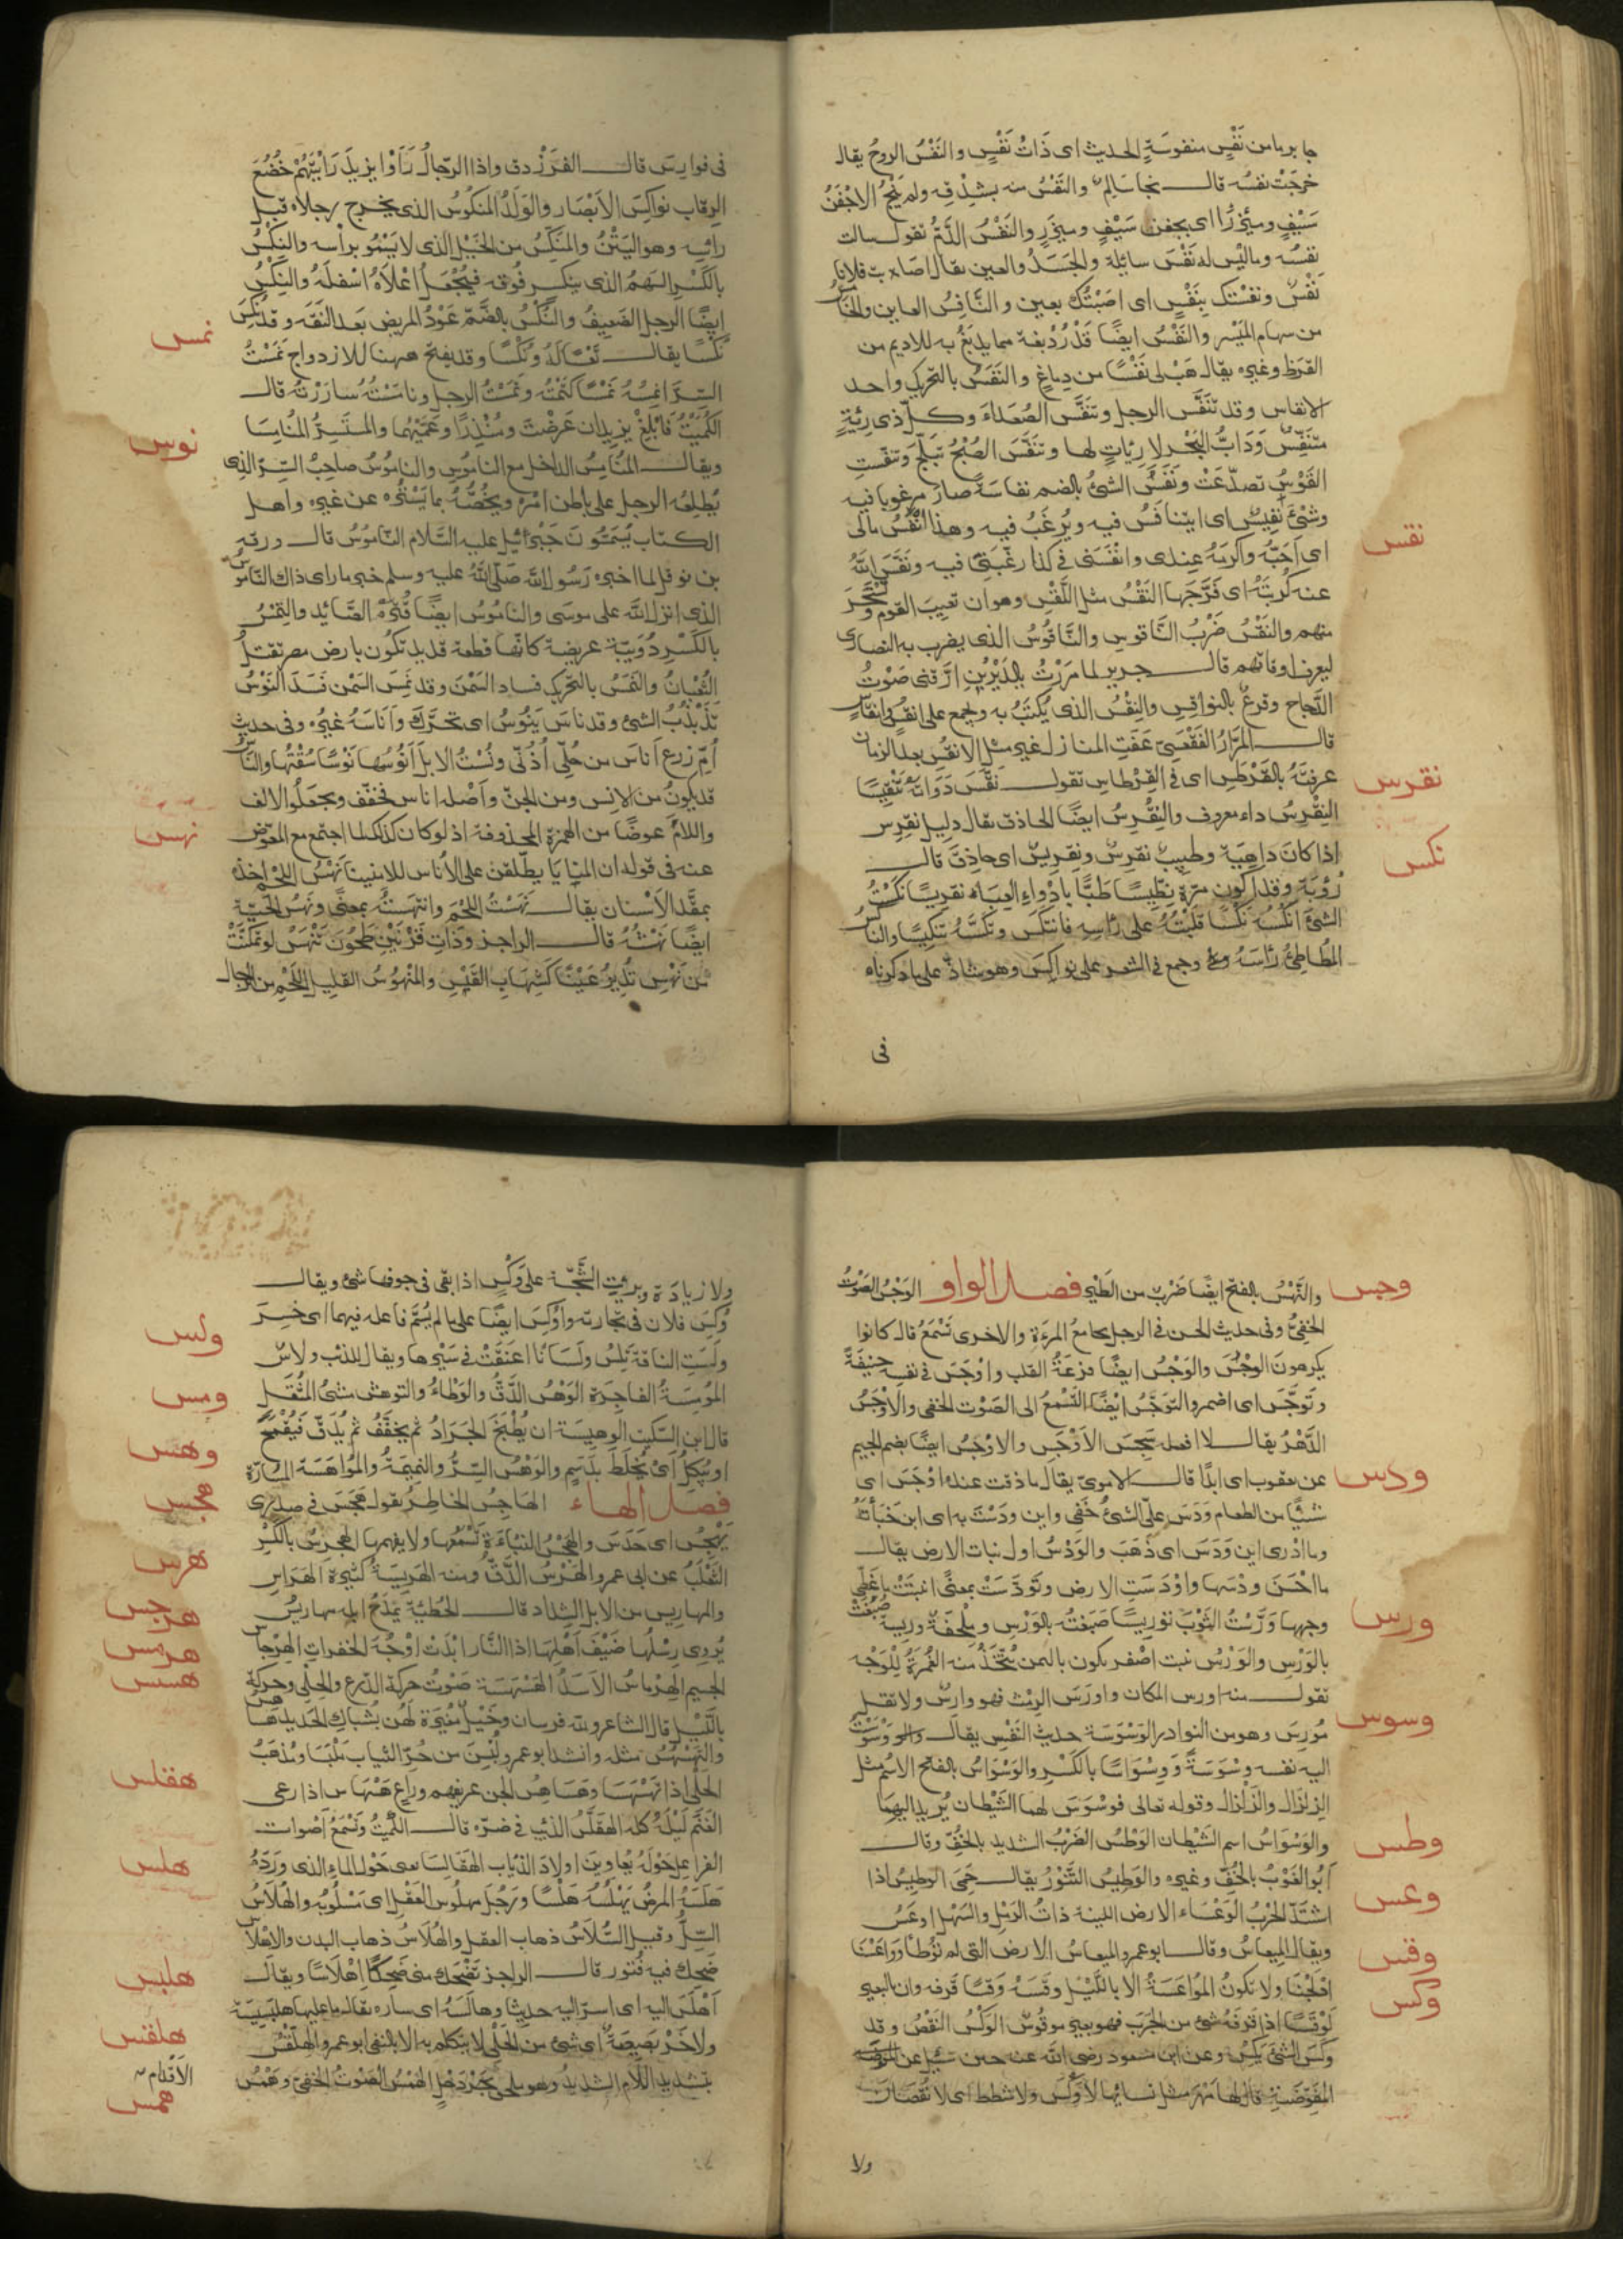 جا برباس نَفْسٍ منفوسَةٍ الحديث اى ذَاتُ نَفْسٍ والنَفْسُ الروحُ يقال
خرجَتْ نفسُه قالـــ نجا سَالِمٌ والنَفْسُ منه بِشِدْقِه ولم يَنْجُ الاجَفْنَ
سَيْفٍ ومِئزَرًا اى بجفن سَيْفٍ ومِئزَرٍ والنَفْسُ الدَمُ تقولــ سالت
نفسُه وماليْس له نَفْسٌ سائِلة والجَسَدُ والعين يقال اصابت فلانا
نَفْسٌ ونفسْتك بنَفْسٍ اى اصَبْتُك بعين والنَّافِسُ العاين والخَامِسُ
من سهام المَيْسر والنَفْسُ ايضًا قَدْرُ دَبْغة مما يدبَغُ به للاديم من
القرَظ وغيره يقال هَبْ لى نَفْسًا من دِباغٍ والنَفَسُ بالتحرّيك واحد
الانفاس وقد تنَفَّسَ الرجل وتنَفَّسَ الصُعَداءَ وكلّ ذى رِئةٍ
متنَفِّسٌ ودَوَابُّ البَحْر لا رِئاتٍ لها وتنَفَّسَ الصُبْحُ تبلّجَ وتنفّست
القَوْسُ تصدّعَتْ ونَفُسَ الشئُ بالضم نفاسَةً صار مرغوبا فيه
وشَئٌ نَفِيسٌ اى يتنَافَسُ فيه ويُرغَبُ فيه وهذا انْفَسُ مالى
اى احَبُّه واكرمُه عِندى وانْفَسَنى فى كذا رغّبَنى فيه ونَفَّسَ اللّهُ
نقس
عنه كُربَتَهُ اى فَرَّجَها النَقْسُ مثل اللَقْسِ وهو ان تعيبَ القوم وتَسْخَرَ
منهم والنَقْسُ ضَرْبُ النَّاقوسِ والنَّاقُوسُ الذى يضرب به النصارى
ليعرفوا اوقاتهم قالــ جرير لما مرَرْتُ بالدَيْرَيْنِ ارَّقنى صَوْتُ
الدَّجاج وقرعٌ بالنواقِسِ والنِقْسُ الذى يُكتَبُ به ويجمع على انقُسٍ وانقاسٍ
قالــ المرّارُ الفَقْعَسىّ عَفَتِ المنازل غير مثل الانقُسِ بعد الزمان
نقرس
عرفتُهُ بالقَرْطَسِ اى فى القِرْطاسِ تقولــ نقَّسَ دَوَاتَهُ تَنْقِيسًا
النِقْرِسُ داء معروف والنِقْرِسُ ايضًا الحاذق يقال دليل نِقرِس
نكس
اذا كانَ داهِيَةً وطبيبٌ نقرِسٌ ونِقْرِيسٌ اى حاذِقٌ قالــ
رُؤْبَة وقد اكون مرّةً نِطّيسًا طَبًّا بادْواءِ الصِبَا نقريسًا نَكَسْتُ
الشئَ انْكُسُه نَكْسًا قلَبْتُهُ على رَاسِه فانتكَسَ ونَكَّسَهُ تنكيسًا والناكسُ
المُطأطِئُ رَاسَهُ وجمع فى الشعر على نواكِسَ وهو شاذٌّ على ما ذكرناه
فى
فى فوارِسَ قالــ الفَرَزْدق واذا الرّجالُ رَأَوْا يزيدَ رَأَيتَهُمْ خُضُعَ
الرقاب نواكِسَ الابْصار والوَلَدُ المَنكُوسُ الذى يخرج رجلاه قبل
رأسه وهو اليَتْنُ والمنَكِّسُ من الخيْل الذى لا يَسْمُو برأسه والنِكْسُ
بالكَسْرِ السَهمُ الذى ينكسر فُوقه فيُجْعَلُ اعْلاهُ اسْفلَهُ والنِكْسُ
ايضًا الرجل الضعِيفُ والنُّكْسُ بالضّمّ عَوْدُ المريض بعد النَقَه وقد نُكِسَ
نمس
نُكْسًا يقالــ تَعْسًا لَهُ ونُكْسًا وقد يفتح ههنا للازدواج نَمَسْتُ
السِرَّ انمِسُه نَمْسًا كَتمْتُه ونَمَسْتُ الرجل ونامَسْتُه سارَرْتُه قالــ
الكُمَيْتُ فابْلِغْ يزيدان عَرَضْتَ ومُنْذِرًا وعَمَّيْهُما والمستَسِرَّ المُنامِسَا
نوس
ويقالــ المُنامِسُ الداخل مع الناموس والناموُسُ صاحِبُ السِّرّ الذى
يُطلِعُه الرجل على باطن امْرِه ويخُصُّهُ بما يَسْتُرُه عن غيره واهل
الكتاب يُسَمُّونَ جَبْرئيل عليه السَّلام النّاموُسُ قالــ ورقه
بن نوفل لما اخبره رَسُولُ اللّه صَلّى اللّهُ عليه وسلم خبر ما راى ذاك النّامُوسُ
الذى انزل اللّه على موسَى والنامُوسُ ايضًا قُتْرَةُ الصَّائد والنِمْسُ
بالكَسْرِ دُوَيبَّة عريضَة كانّها قطعة قديد تكون بارض مصر تقتلُ
الثُعْبانُ والنَمَسُ بالتحرّيك فساد السَمْنَ وقد نَمِسَ السَمْن فَسَدَ النَوْسُ
تَذَبْذُبُ الشئ وقد ناسَ يَنُوسُ اى تحَرَّكَ وأناسَهُ غيرُه وفى حديث
أمّ زرع أناسَ من حُلِىٍّ أذُنَىَّ ونُسْتُ الابلَ أنُوسُها نَوْسًا سُقْتُها والناسُ
قد يكونُ من الانِس ومن الجنّ وأصْله اناس فخفّف ويجعلُوا الالف
نهس
واللام عوضًا من الهمزة المحذوفة اذ لو كان كذلك لما اجتمع مع المعوّض
عنه فى قوله ان المنايَا يطّلعْن على الأناس الامنينَا نَهْسُ اللحْم اخذُه
بمقَدّم الاسْنان يقالــ نَهَسْتُ اللحْم وانتهَسْتُه بمعنًى ونَهْسُ الحَيّة
ايضًا نَهْشُه قالــ الراجز وذَاتِ قَرْنَيْنِ طَحُونَ تَنْهَسُ لو تمكنَتْ
مِنْ نَهْسِ تُدِيرُ عَيْنًا كشِهَابِ القَبَسِ والمنْهوُسُ القليل اللحْمِ من الرجال
وجس
والنَّهْسُ بالفتح ايضًا ضَرْبٌ من الطَيْرِ فصل الواو الوَجْسُ الصَوْتُ
الخفىُّ وفى حديث الحسن فى الرجل يجامعُ المرءَةِ والاخرى تَسْمَعُ قال كانوا
يكرهونَ الوَجْسَ والوَجْسُ ايضًا فزعَةُ القلب واوْجَسَ فى نفسِه خِيفَةً
وتوَجَّسَ اى اضمر والتوَجُّسُ ايْضًا التَسَمُّعُ الى الصَوْت الخفى والاَوْجَسُ
الدَّهْرُ يقالــ لا افعله سَجِيسَ الأوْجَسِ والاوْجُسُ ايضًا بضم الجيم
ودس
عن يعقوب اى ابدًا قالــ الامَوىّ يقال ما ذقت عنده اوْجَسَ اى
شئيًا من الطعام وَدَسَ علىَّ الشئُ خَفِى واين ودَسْتَ به اى اين خَبَأْتَهُ
وما ادْرى اين وَدَسَ اى ذَهَبَ والوَدْسُ اول نبات الارض يقالــ
ما احْسَنَ ودْسَها واوْدَسَتِ الارض وتَودَّسَتْ بمعنًى انبتَتْ ما غطّى
ورس
وجهها وَرَّسْتُ الثَوْبَ توريسًا صَبَغتُه بالوَرْسِ ومِلْحفةٌ وريسَةٌ صُبغَتْ
بالوَرْسِ والوَرْسُ نبت اصْفر يكون باليمن يتَّخَذُ منه الغُمْرَةُ للوَجْه
تقولــ منه اورس المكان واورَسَ الرِمْث فهو وارِسٌ ولا تقل
وسوس
مُورِسٌ وهو من النوادر الوَسْوَسَة حديث النَفْسِ يقالــ وَسْوَسَتْ
اليه نفسه وسْوَسَةً وَوِسْواسًا بالكَسْرِ والوَسْوَاسُ بالفتح الاسْم مثل
الزِلزَال والزَلْزال وقوله تعالى فوسْوَسَ لهما الشَيْطان يُريد اليهما
وطس
والوَسْوَاسُ اسم الشَيْطان الوَطْسُ الضَرْبُ الشديد بالخفّ وقالــ
أبُو الغَوْث بالخُفّ وغيره والوَطِيسُ التَنُّوْرُ يقالــ حَمِىَ الوطيسُ اذا
وعس
اشتَدّ الحَرْبُ الوَعْساء الارض اللينة ذاتُ الرَمْلِ والسَهْلُ اوعَسُ
وقس
ويقال الميعاسُ وقالــ ابو عمرو الميعاسُ الارض التى لم تُوطأ وَوَاعَسْنا
وكس
ادْلجْنَا ولا تكونُ المُوَاعَسَةُ الا باللَيْل وقسَهُ وَقسًا قرفه وان بالبعير
لَوَقسًا إذا قرَفَهُ شئ من الجَرَبِ فهو بعير موقُوسٌ الوَكْسُ النَقْصُ وقد
وكَسَ الشئ يَكِسُ وعن ابن مسعود رضى اللّه عنه حين سُئِل عن
المفَوِّضَةِ قال لها مهر مثل نسائها لا وَكْسَ ولا شطط اى لا نُقْصَان
ولا
ولا زيادَة وبرئتِ الشَجّة على وَكْسٍ اذا بقى فى جوفها شئ ويقالــ
وُكِسَ فلان فى تجارته واوُكِسَ ايضًا على ما لم يُسَمَّ فاعله فيهما اى خسِرَ
ولس
ولَسَتِ الناقة تَلِسُ ولَسَانًا اعنَقَتْ فى سَيْرِها ويقال للذئب ولاّس
ومس
المُومِسَةُ الفاجِرَة الوَهْسُ الدَّقُّ والوَطاءُ والتوهُّس مشىُ المُثْقَل
وهس
قال ابن السكيت الوهيسَة ان يُطْبَخَ الجَرَادُ ثم يجَفَّفُ ثم يُدَقّ فيُقْمَحُ
او يُبكلُ اى يُخلَط بدَسَمٍ والوَهْسُ السِرُّ والنميمَةُ والمُوَاهَسَة المسارّة
هجس
فصل الهاء الهَاجِسُ الخاطِرُ يقول هَجَسَ فى صدْرى
يَهْجِسُ اى حَدَسَ والهَجْسُ النَبْأةَ تَسْمَعُها ولا يفهمها الهجرسُ بالكَسْرِ
هرس
الثَعْلَبُ عن ابى عمرو الهَرْسُ الدَّقُّ ومنه الهَرِيسَةُ كثيرة الهَرَاسِ
هرجس
والمهاريس من الابل الشِدَاد قالــ الحُطيْئة يَمْدَحُ ابله مهاريسُ
هرمس
يُروى رِسْلُها ضَيْفَ أهْلِها اذا النَّار ابْدَتْ اوْجُهَ الخفراتِ الهِرْجاس
هسس
الجسيم الهِرْماسُ الاسَدُ الهَسْهَسَة صَوْتُ حركة الدّرع والحلْى وحركة
بالليْل قال الشاعر وللّه فرسان وخَيْلٌ مُغيرَة لَهُنّ بشُباكِ الحَديد هَساهِس
والتَهَسْهُسُ مثله وانشد ابو عمرو لُبِسْنَ من حُرّ الثياب مَلْبَسَا ومُذهَبُ
هقلس
الحلْى اذا تَهَسْهَسَا وهَسَاهِسُ الجن عزيفهم وراعٍ هَسْهَاس اذا رعى
الغَنَمَ ليْلَهُ كله الهقَلّسُ الذئب فى ضرّه قالــ الكُميْتُ وتَسْمَعُ اصْوات
هلس
الفراعل حَوْلَهُ يُعاوينَ اولادَ الذئاب الهَقالِسَا يعنى حَوْل الماءِ الذى ورَدَهُ
هَلَسَهُ المرضُ يَهْلسُهُ هَلْسًا ورَجُل مهلُوس العَقْلِ اى مَسْلُوبُه والهُلاسُ
السِلّ وقيل السُّلاسُ ذهاب العقل والهُلاسُ ذهاب البدن والاهْلاسُ
هلبس
ضَحِك فيه فُتور قالــ الراجز تَضْحَك منى ضَحِكًا اهْلاسًا ويقال
أهْلَسَ اليه اى اسرّ اليه حديثا وهالَسَهُ اى سارّه يقالــ ما عليها هَلْبَسِيسَة
هلقس
ولا خَرْبَصِيصَةٌ اى شئ من الحَلْى لا يتكلم به الا بالنفى ابو عمرو الهِلَّقْسُ
همس
بتشديد اللّام الشديدُ وهو ملحق بجِرْدَحْلٍ الهَمْسُ الصَوْتُ الخفىّ وهَمْسُ
الاَقْدام